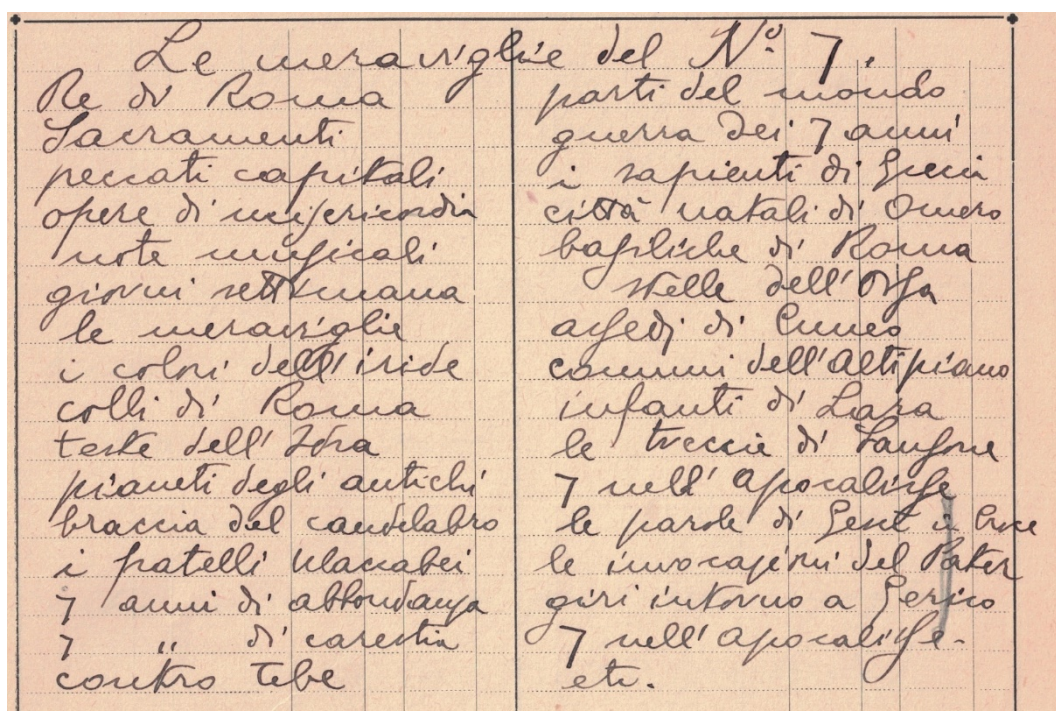 Le meraviglie del Nº 7.
Re di Roma
Sacramenti
peccati capitali
opere di misericordia
note musicali
giorni settimana
le meraviglie
i colori dell'iride
colli di Roma
teste dell'Idra
pianeti degli antichi
braccia del candelabro
i fratelli Maccabei
7 anni di abbondanza
7 " di carestia
contro Tebe
parti del mondo
guerra dei 7 anni
i sapienti di Grecia
città natali di Omero
basiliche di Roma
stelle dell'Orsa
assedi di Cuneo
comuni dell'Altipiano
infanti di Lara
le treccie di Sansone
7 nell'Apocalisse
le parole di Gesù in Croce
le invocazioni del Pater
giri intorno a Gerico
7 nell'Apocalisse.
etc.